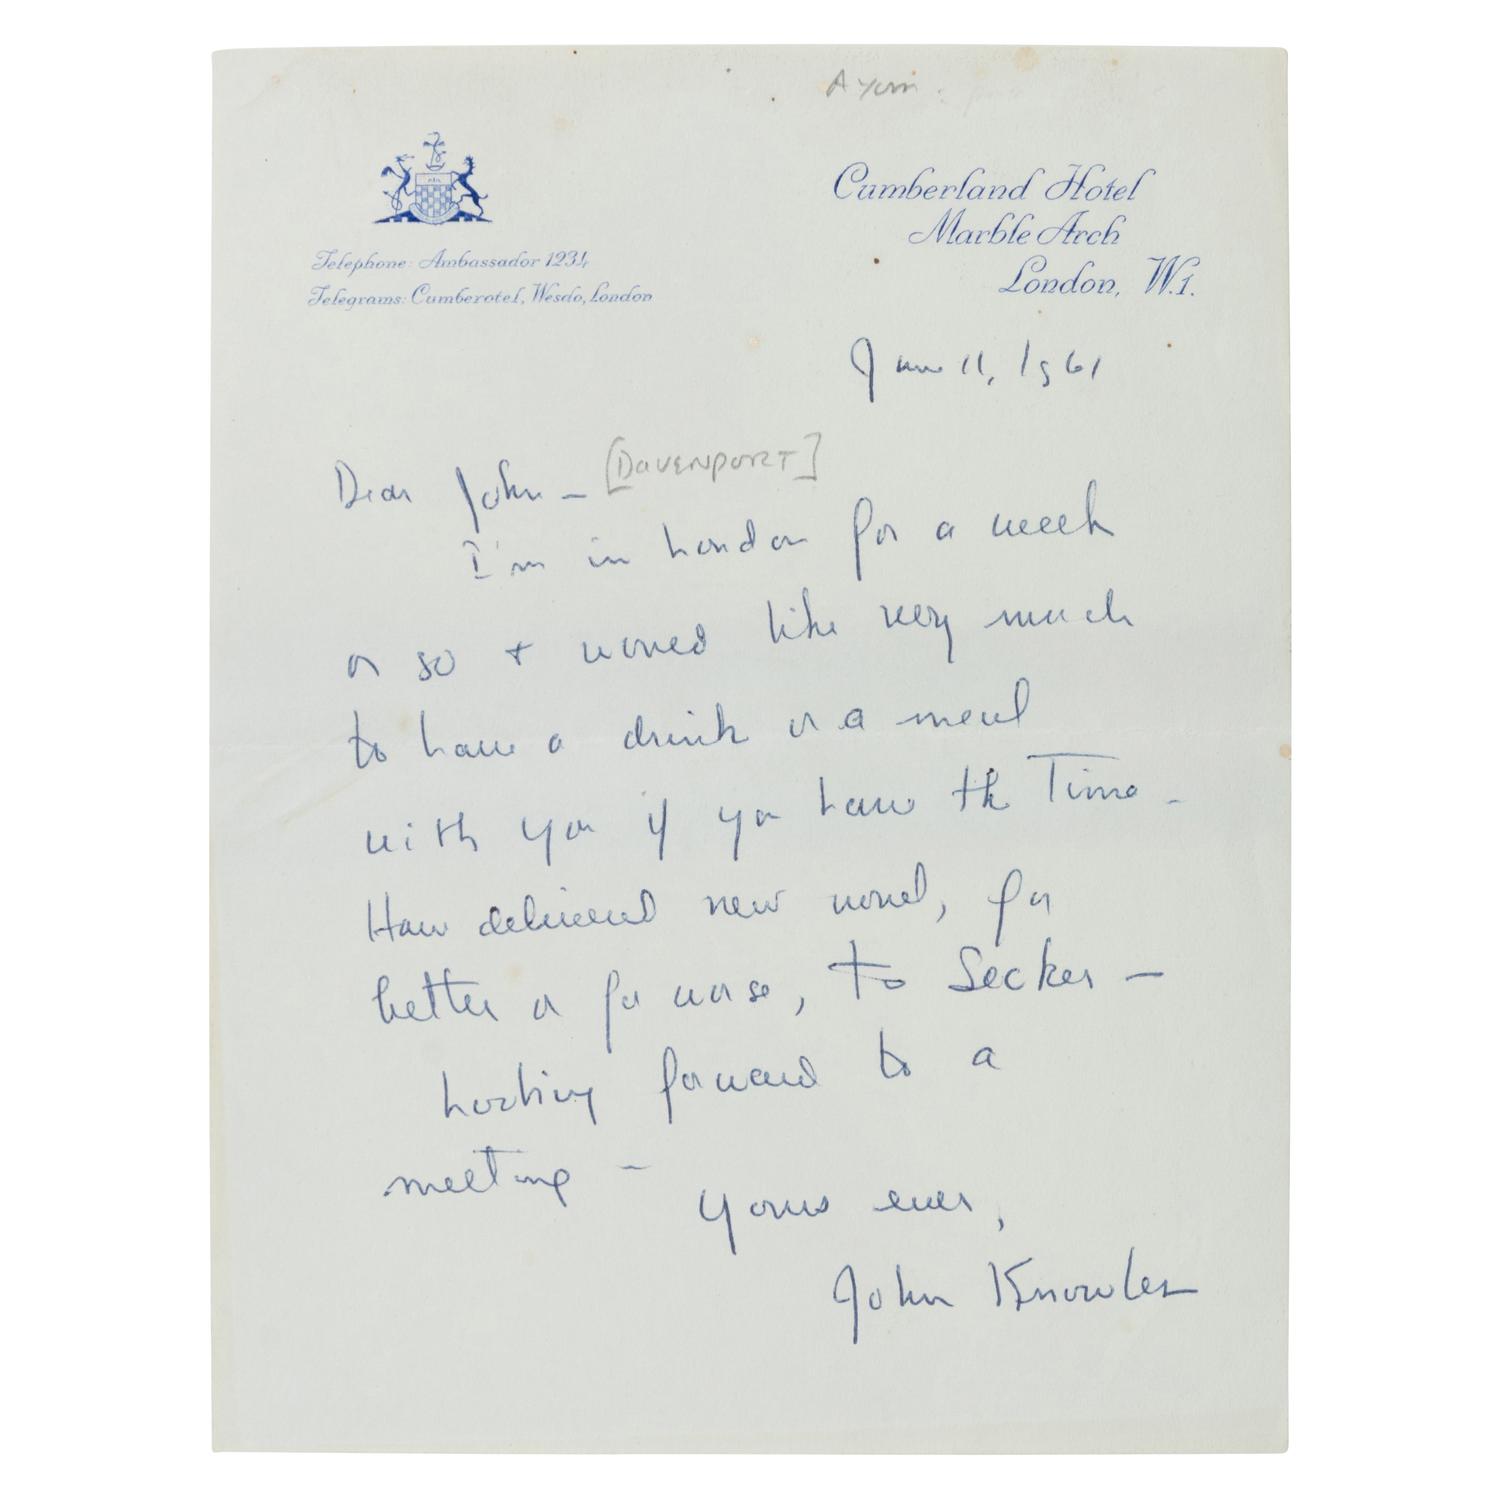 Cumberland Hotel
Marble Arch
London, W.1.
Telephone: Ambassador 1234
Telegrams: Cumberotel, Wesdo, London
June 11, 1961
Dear John – [DAVENPORT]
I'm in London for a week
or so + would like very much
to have a drink or a meal
with you if you have the Time –
Have delivered new novel, for
better or for worse, to Secker –
Looking forward to a
meeting –
Yours ever,
John Knowles